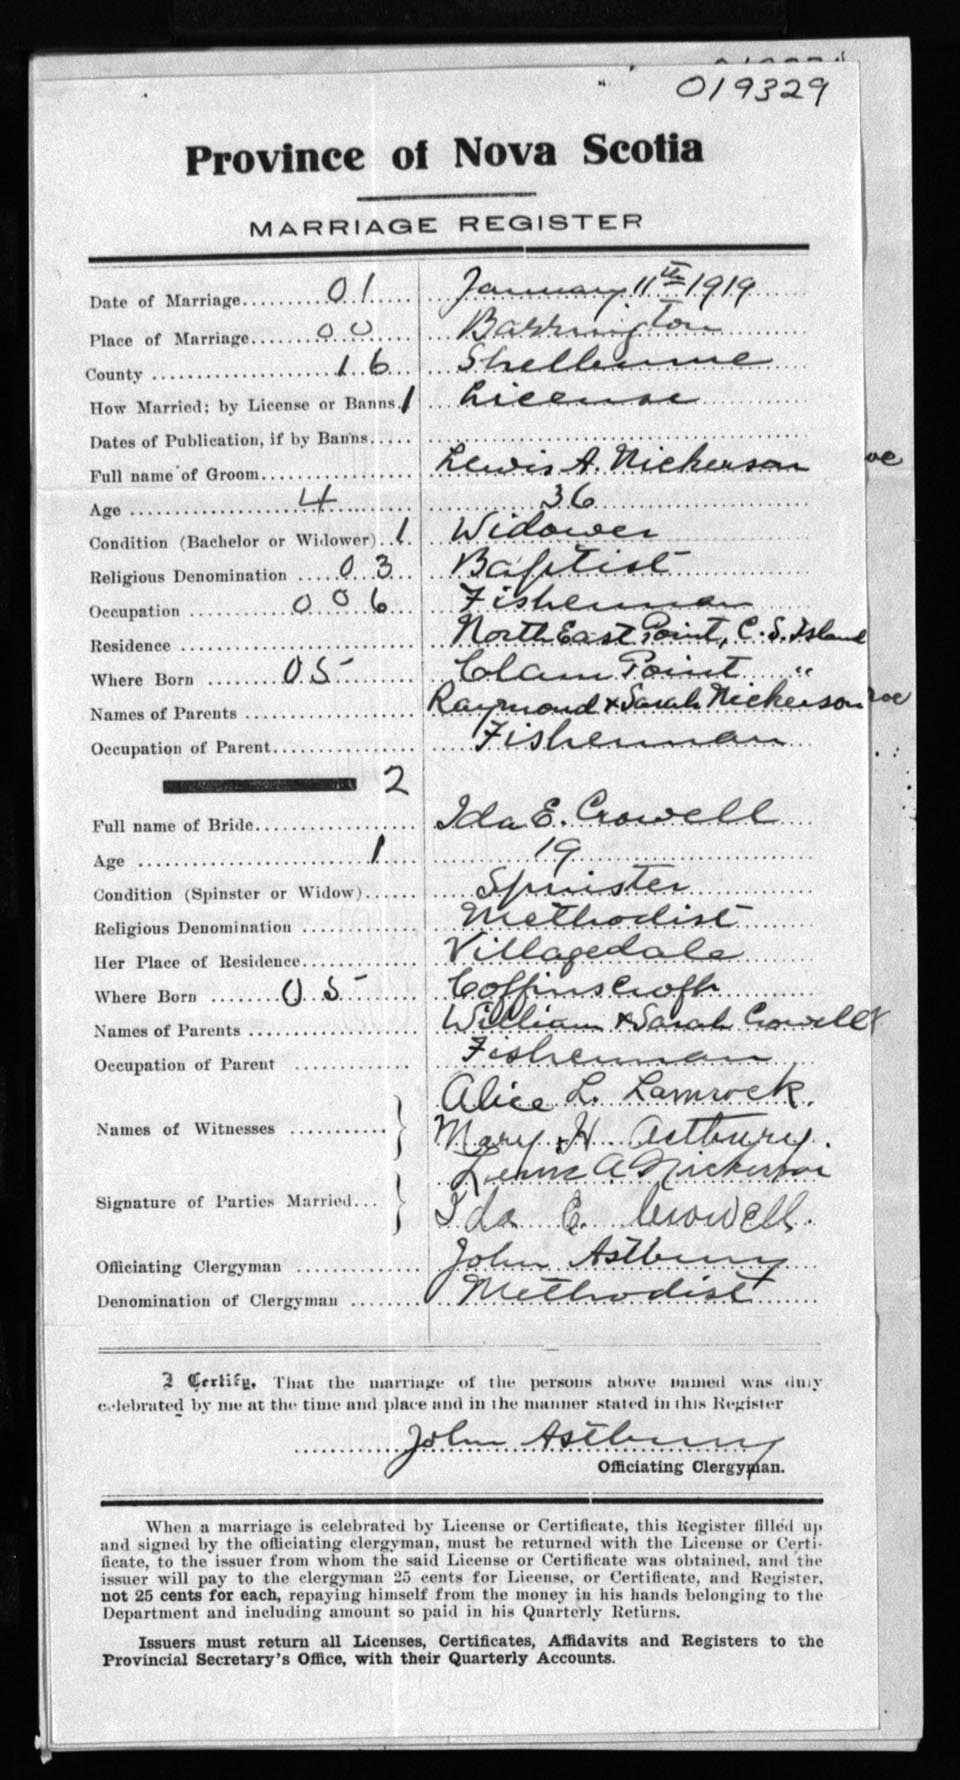 019329
Province of Nova Scotia
MARRIAGE REGISTER
Date of Marriage.........01..... January 11th 1919
Place of Marriage.......00..... Barrington
County ....................16... Shelburne
How Married; by License or Banns.1 License
Dates of Publication, if by Banns.....
Full name of Groom.................. Lewis A. Nickerson
Age ..................4........... 36
Condition (Bachelor or Widower)..1. Widower
Religious Denomination .....03... Baptist
Occupation ..........006... Fisherman
Residence ........................... North East Point, C. S. Island
Where Born ........05......... Clam Point "
Names of Parents ................... Raymond & Sarah Nickerson
Occupation of Parent................. Fisherman
2
Full name of Bride................... Ida E. Crowell
Age ..........................1.... 19
Condition (Spinster or Widow)....... Spinster
Religious Denomination ............. Methodist
Her Place of Residence.............. Villagedale
Where Born .......05.......... Coffinscroft
Names of Parents .................... William & Sarah Crowell
Occupation of Parent .............. Fisherman
Alice L. Lamrock.
Names of Witnesses ........... } Mary H. Astbury.
Lewis A Nickerson
Signature of Parties Married... } Ida E. Crowell.
Officiating Clergyman .............. John Astbury
Denomination of Clergyman ........ Methodist
I Certify, That the marriage of the persons above named was duly
celebrated by me at the time and place and in the manner stated in this Register
John Astbury
Officiating Clergyman.
When a marriage is celebrated by License or Certificate, this Register filled up
and signed by the officiating clergyman, must be returned with the License or Certi-
ficate, to the issuer from whom the said License or Certificate was obtained, and the
issuer will pay to the clergyman 25 cents for License, or Certificate, and Register,
not 25 cents for each, repaying himself from the money in his hands belonging to the
Department and including amount so paid in his Quarterly Returns.
Issuers must return all Licenses, Certificates, Affidavits and Registers to the
Provincial Secretary's Office, with their Quarterly Accounts.